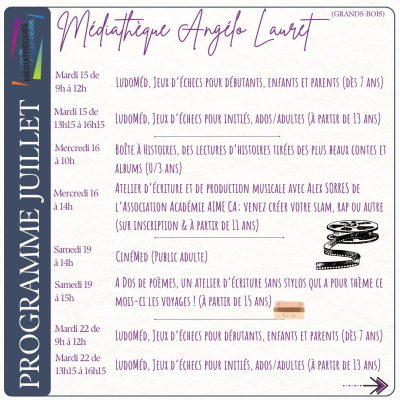 Médiathèque Angélo Lauret
(GRANDS-BOIS)
MÉDIATHÈQUES
PROGRAMME JUILLET
Mardi 15 de
9h à 12h
LudoMéd, Jeux d'échecs pour débutants, enfants et parents (dès 7 ans)
Mardi 15 de
13h15 à 16h15
LudoMéd, Jeux d'échecs pour initiés, ados/adultes (à partir de 13 ans)
Mercredi 16
à 10h
Boîte à Histoires, des lectures d'histoires tirées des plus beaux contes et
albums (0/3 ans)
Mercredi 16
à 14h
Atelier d'écriture et de production musicale avec Alex SORRES de
l'Association Académie AIME CA ; venez créer votre slam, rap ou autre
(sur inscription & à partir de 11 ans)
Samedi 19
à 14h
CinéMed (Public adulte)
Samedi 19
à 15h
A Dos de poèmes, un atelier d'écriture sans stylos qui a pour thème ce
mois-ci les voyages ! (à partir de 15 ans)
Mardi 22 de
9h à 12h
LudoMéd, Jeux d'échecs pour débutants, enfants et parents (dès 7 ans)
Mardi 22 de
13h15 à 16h15
LudoMéd, Jeux d'échecs pour initiés, ados/adultes (à partir de 13 ans)